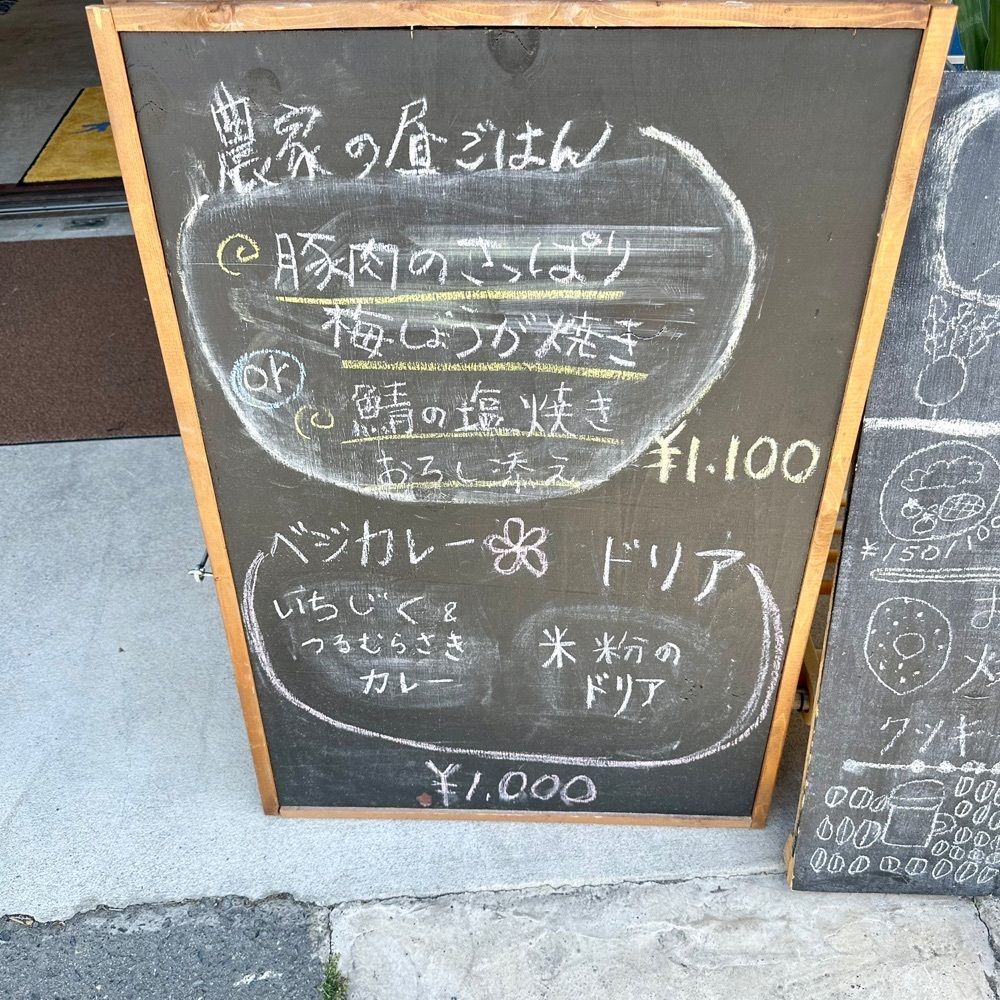 農家の昼ごはん
豚肉のさっぱり
梅しょうが焼き
or
鯖の塩焼き
おろし添え
¥1.100
ベジカレー
ドリア
いちじく&
つるむらさき
カレー
米粉の
ドリア
¥1.000
¥150
クッキ